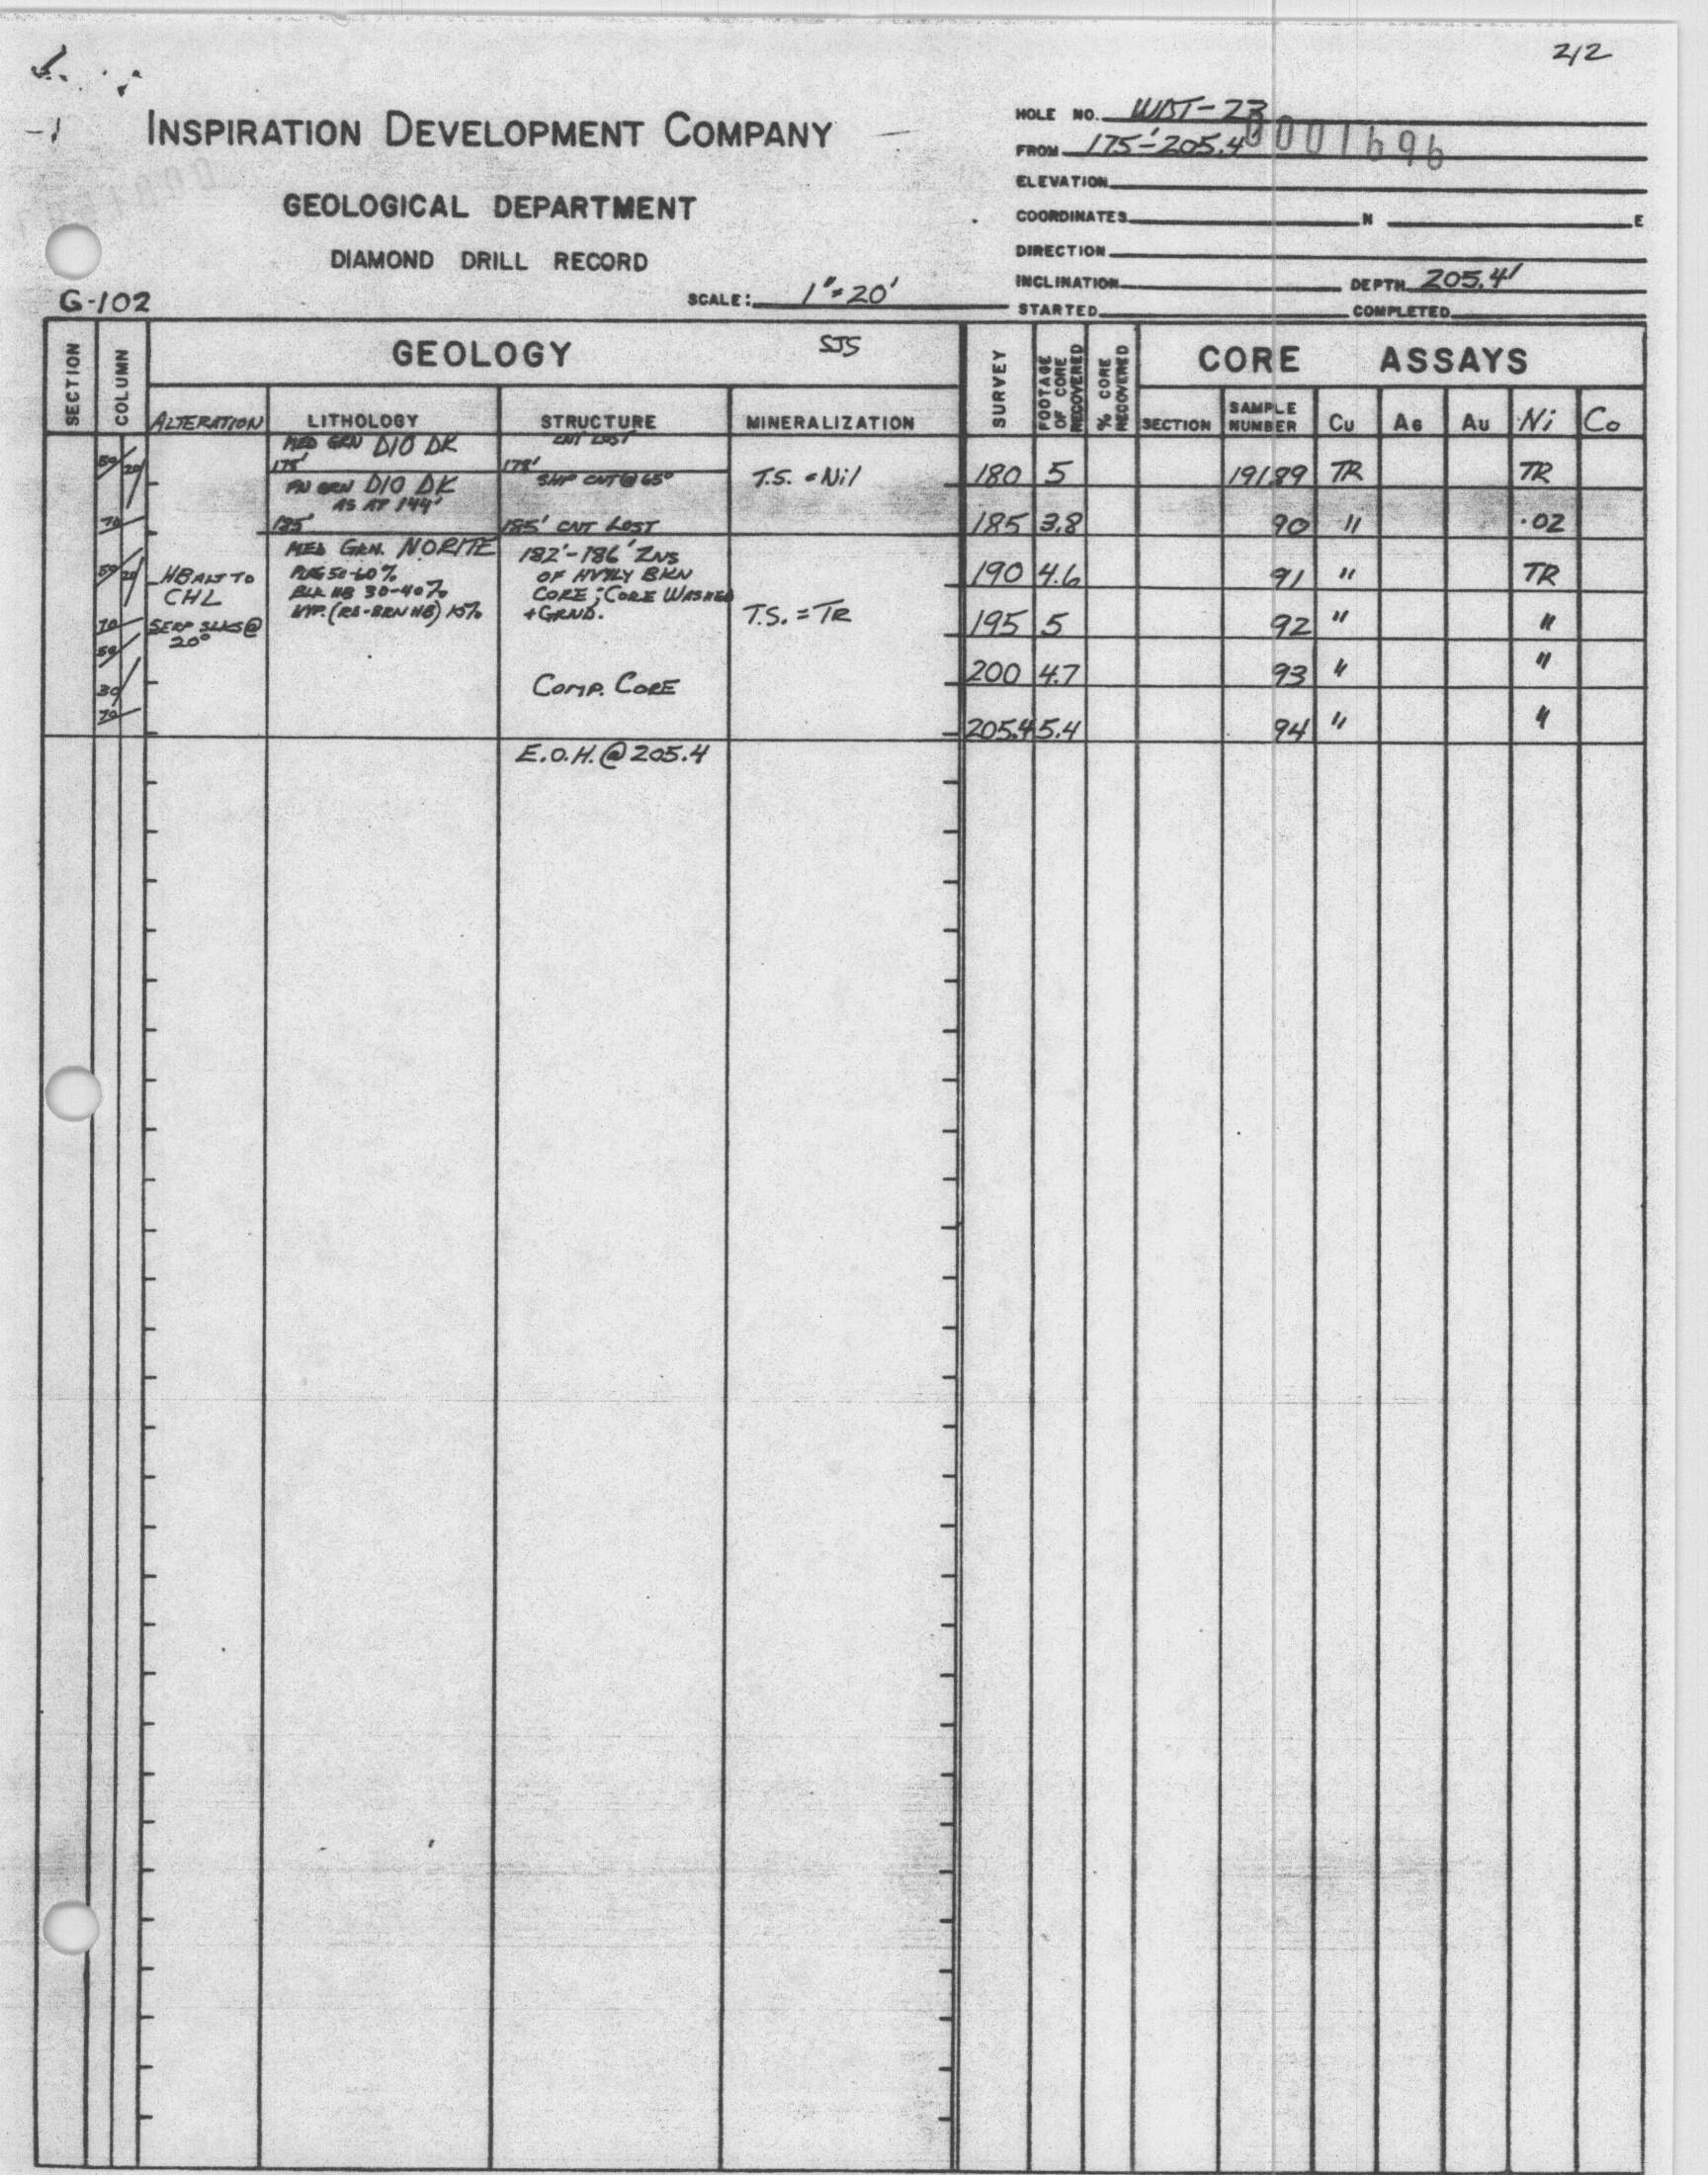 2/2
INSPIRATION DEVELOPMENT COMPANY
GEOLOGICAL DEPARTMENT
DIAMOND DRILL RECORD
G-102
SCALE: 1"=20'
HOLE NO. WDT-23
0001696
FROM 175'-205.4
ELEVATION
COORDINATES N E
DIRECTION
INCLINATION DEPTH 205.4'
STARTED COMPLETED
SECTION
COLUMN
GEOLOGY SJS
SURVEY
FOOTAGE OF CORE RECOVERED
% CORE RECOVERED
CORE ASSAYS
ALTERATION LITHOLOGY STRUCTURE MINERALIZATION SECTION SAMPLE NUMBER Cu AG Au Ni Co
MED GRN DIO DK CNT LOST
50 20 175' 178' T.S. = Nil 180 5 19189 TR TR
FN GRN DIO DK SHP CNT @ 65°
AS AT 144'
70 185' 185' CNT LOST 185 3.8 90 " .02
MED GRN. NORITE
PLAG 50-60%
BLK HB 30-40%
HYP. (RD-BRN HB) 10%
182'-186' ZNS
OF HVYLY BKN
CORE; CORE WASHED
+ GRND.
50 20 HB ALT TO
CHL
190 4.6 91 " TR
70 SERP SLKS @
20°
T.S. = TR 195 5 92 " "
50
30 COMP. CORE 200 4.7 93 " "
70 205.4 5.4 94 " "
E.O.H. @ 205.4